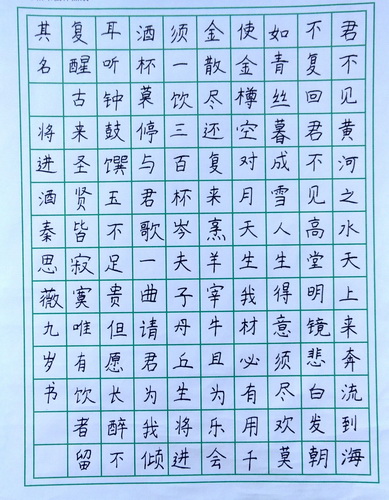 君不见黄河之水天上来奔流到海
不复回君不见高堂明镜悲白发朝
如青丝暮成雪人生得意须尽欢莫
使金樽空对月天生我材必有用千
金散尽还复来烹羊宰牛且为乐会
须一饮三百杯岑夫子丹丘生将进
酒杯莫停与君歌一曲请君为我倾
耳听钟鼓馔玉不足贵但愿长醉不
复醒古来圣贤皆寂寞唯有饮者留
其名 将进酒秦思薇九岁书